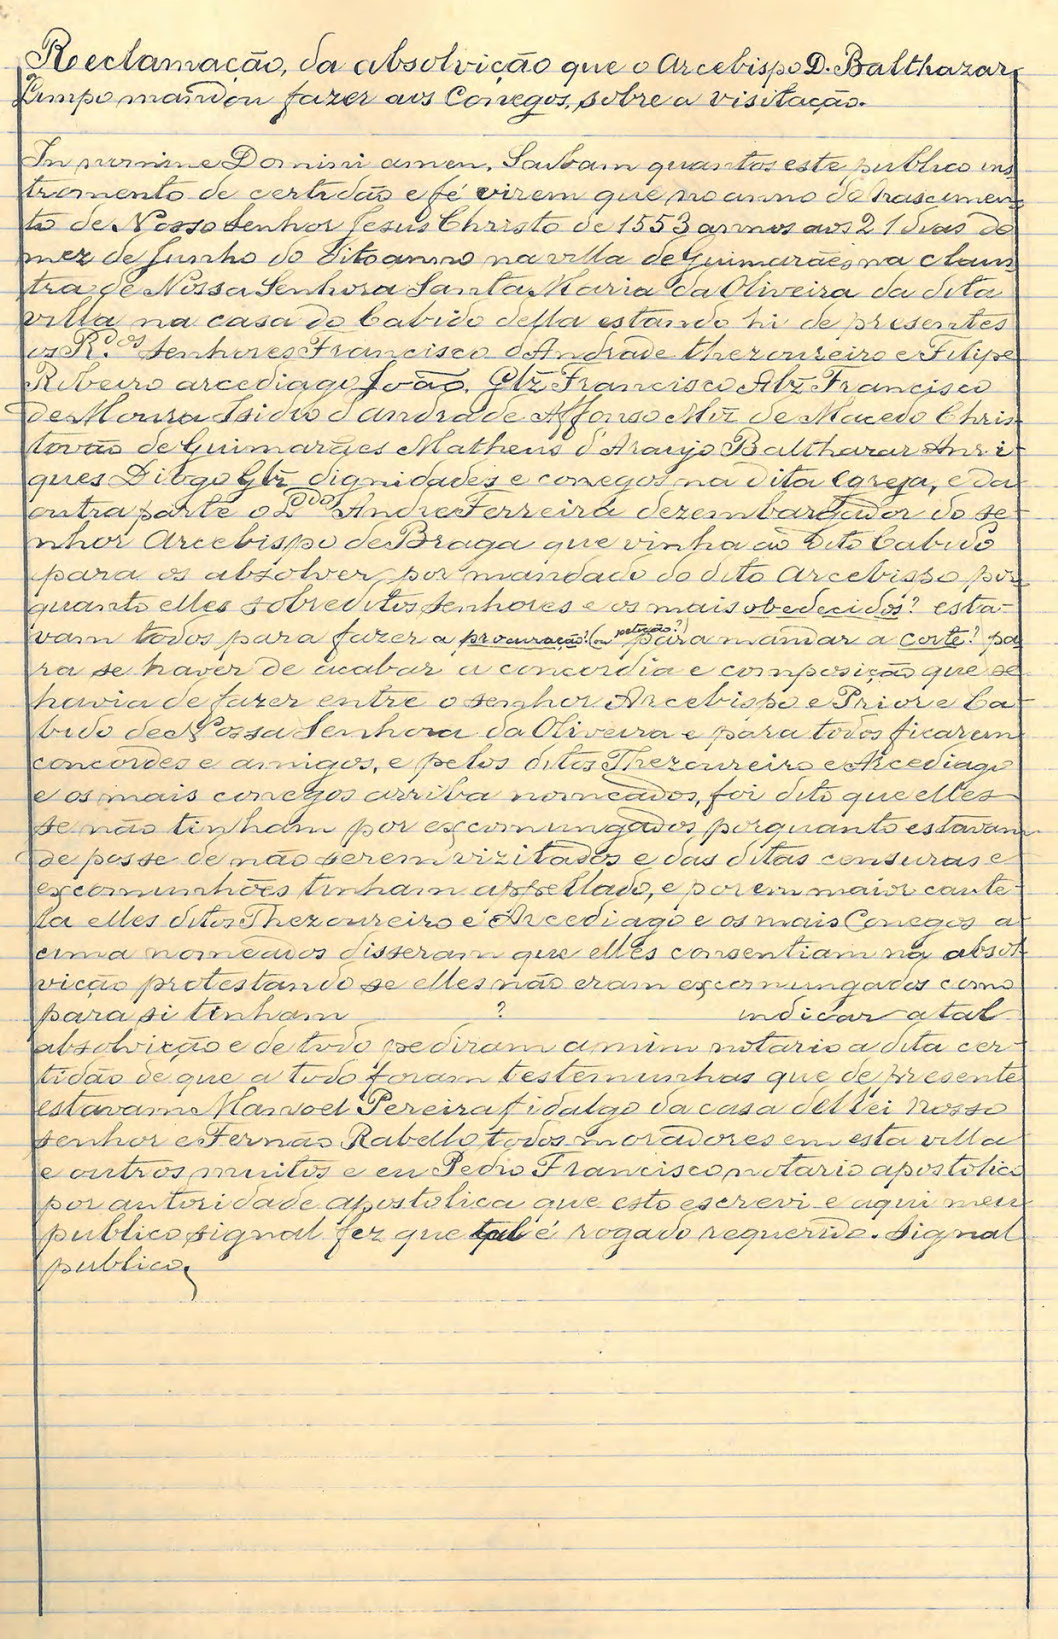 Reclamação, da absolvição que o Arcebispo D. Balthazar
Limpo mandou fazer aos Conegos, sobre a visitação.
In nomine Domini amen. Saibam quantos este publico ins
tromento de certidão e fé virem que no anno do Nascimen
to de Nosso Senhor Jesus Christo de 1553 annos aos 21 dias do
mez de Junho do dito anno na villa de Guimarães na claus
tra de Nossa Senhora Santa Maria da Oliveira da dita
villa na casa do Cabido della estando hi de presentes
os R.dos Senhores Francisco d'Andrade thezoureiro e Filipe
Ribeiro arcediago João Glz Francisco Alz Francisco
de Moura Isidro d'andrade Affonso Miz de Macedo Chris
tovão de Guimarães Matheus d'Araujo Balthazar Anri
ques Diogo Glz dignidades e conegos na dita Egreja, e da
outra parte o L.do Andre Ferreira dezembargador do se
nhor Arcebispo de Braga que vinha ao dito Cabido
para os absolver por mandado do dito Arcebispo por
quanto elles sobreditos senhores e os mais obedecidos? esta-
vam todos para fazer a procuração? (ou petição?) para mandar a corte? pa
ra se haver de acabar a concordia e composição que se
havia de fazer entre o senhor Arcebispo e Prior e Ca-
bido de Nossa Senhora da Oliveira e para todos ficarem
concordes e amigos, e pelos ditos Thezoureiro e Arcediago
e os mais conegos arriba nomeados, foi dito que elles
se não tinham por excomungados, porquanto estavam
de posse de não serem vizitados e das ditas censuras e
excomunhões tinham appellado, e porem maior caute-
la elles ditos Thezoureiro e Arcediago e os mais Conegos a-
cima nomeados disseram que elles consentiam na absol-
vição protestando se elles não eram excomungados como
para si tinham ? indicar a tal
absolvição e de todo pediram a mim notario a dita cer-
tidão de que a todo foram testemunhas que de presente
estavam Manoel Pereira fidalgo da casa del Rei Nosso
senhor e Fernão Rabello todos moradores em esta villa
e outros muitos e eu Pedro Francisco, notario apostolico
por autoridade apostolica que esto escrevi e aqui meu
publico signal fez que tal é rogado requerido. Signal
publico,